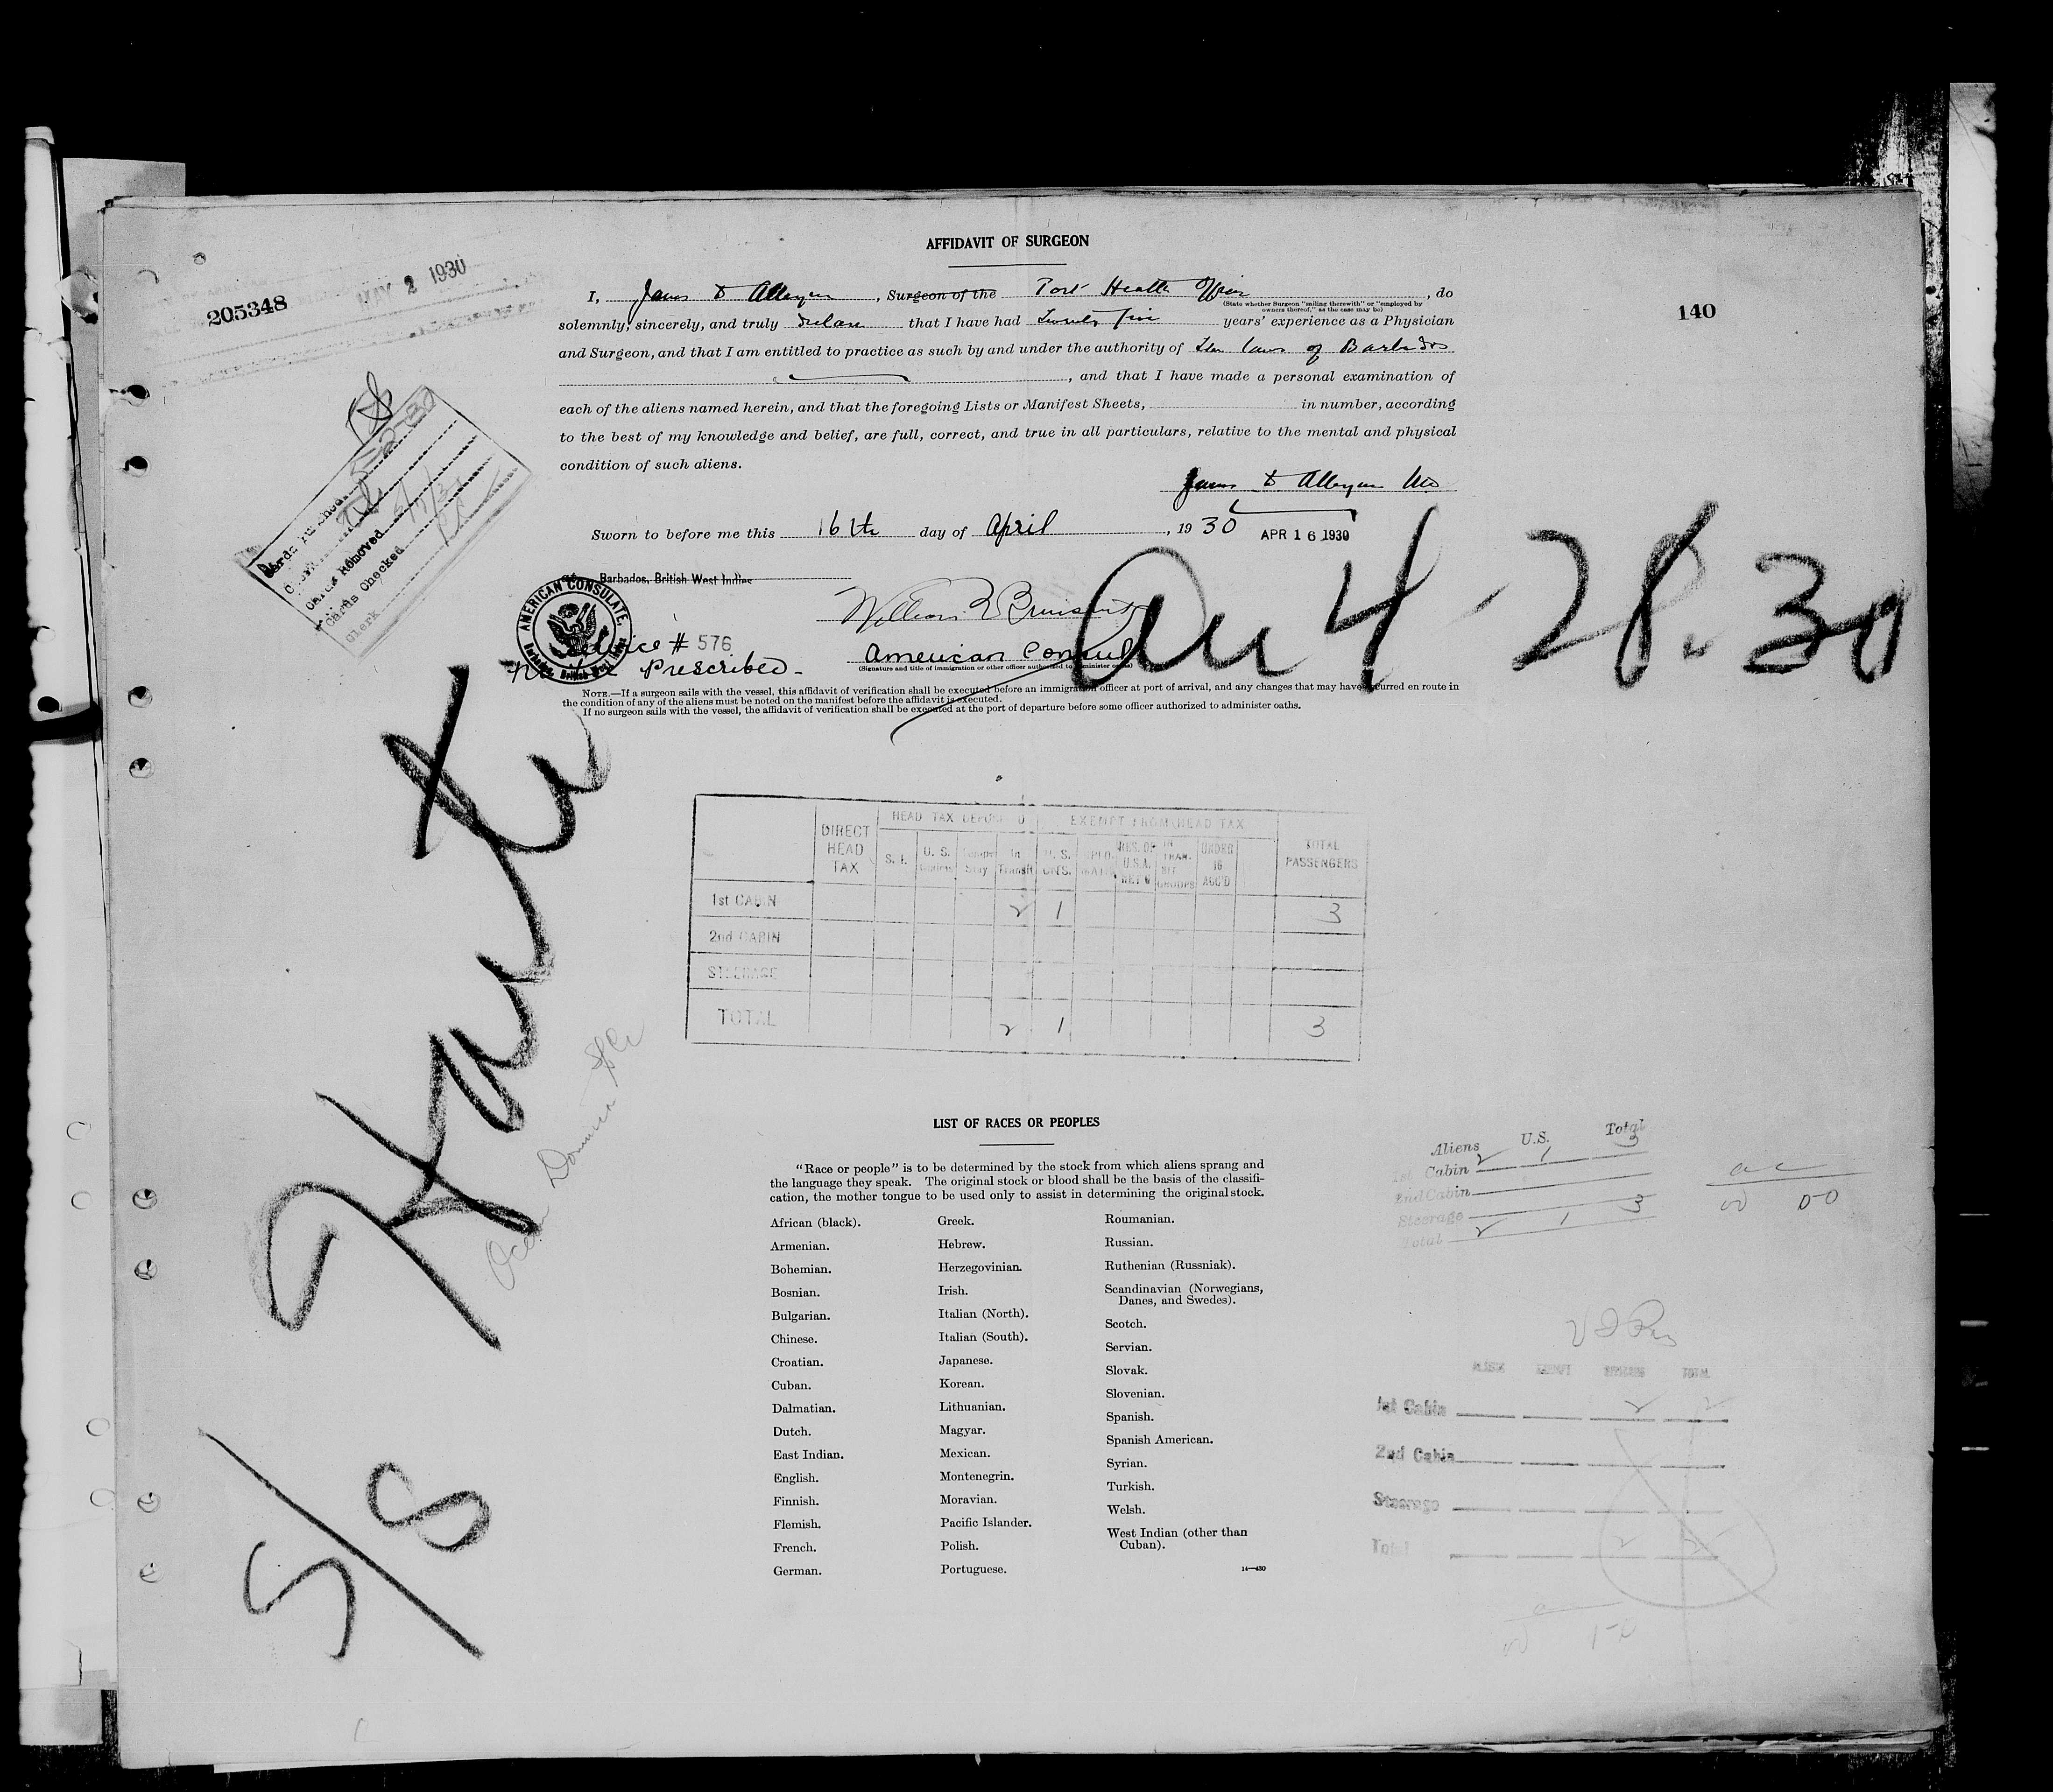 AFFIDAVIT OF SURGEON
205348
MAY 2 1930
140
I, James D Alleyne, Surgeon of the Port Health Officer, do
(State whether Surgeon "sailing therewith" or "employed by
owners thereof," as the case may be)
solemnly, sincerely, and truly declare that I have had Twenty five years' experience as a Physician
and Surgeon, and that I am entitled to practice as such by and under the authority of the laws of Barbados
, and that I have made a personal examination of
each of the aliens named herein, and that the foregoing Lists or Manifest Sheets, in number, according
to the best of my knowledge and belief, are full, correct, and true in all particulars, relative to the mental and physical
condition of such aliens.
James D Alleyne MD
Sworn to before me this 16th day of April, 1930
APR 16 1930
Barbados, British West Indies
AMERICAN CONSULATE.
Barbados, British West Indies
# 576
Prescribed-
William
American Consul
(Signature and title of immigration or other officer authorized to administer oaths)
4-28-30
5-2-30
Cards Removed
Cards Checked
Clerk
NOTE.—If a surgeon sails with the vessel, this affidavit of verification shall be executed before an immigration officer at port of arrival, and any changes that may have occurred en route in
the condition of any of the aliens must be noted on the manifest before the affidavit is executed.
If no surgeon sails with the vessel, the affidavit of verification shall be executed at the port of departure before some officer authorized to administer oaths.
DIRECT HEAD TAX
HEAD TAX DEPOSITED
EXEMPT FROM HEAD TAX
TOTAL PASSENGERS
S. I.
U. S.
Stay
In Transit
U. S.
RES. OF U.S.A.
IN TRAN.
GROUPS
UNDER 16 ACC'D
1st CABIN 2 1 3
2nd CABIN
STEERAGE
TOTAL 2 1 3
5/8
LIST OF RACES OR PEOPLES
"Race or people" is to be determined by the stock from which aliens sprang and
the language they speak. The original stock or blood shall be the basis of the classifi-
cation, the mother tongue to be used only to assist in determining the original stock.
African (black).
Armenian.
Bohemian.
Bosnian.
Bulgarian.
Chinese.
Croatian.
Cuban.
Dalmatian.
Dutch.
East Indian.
English.
Finnish.
Flemish.
French.
German.
Greek.
Hebrew.
Herzegovinian.
Irish.
Italian (North).
Italian (South).
Japanese.
Korean.
Lithuanian.
Magyar.
Mexican.
Montenegrin.
Moravian.
Pacific Islander.
Polish.
Portuguese.
Roumanian.
Russian.
Ruthenian (Russniak).
Scandinavian (Norwegians,
Danes, and Swedes).
Scotch.
Servian.
Slovak.
Slovenian.
Spanish.
Spanish American.
Syrian.
Turkish.
Welsh.
West Indian (other than
Cuban).
14—430
Aliens U.S. Total
1st Cabin 2 1 3
2nd Cabin
Steerage
Total 2 1 3
ALIENS EXEMPT TOTAL
1st Cabin 2 2
2nd Cabin
Steerage
Total 2 2